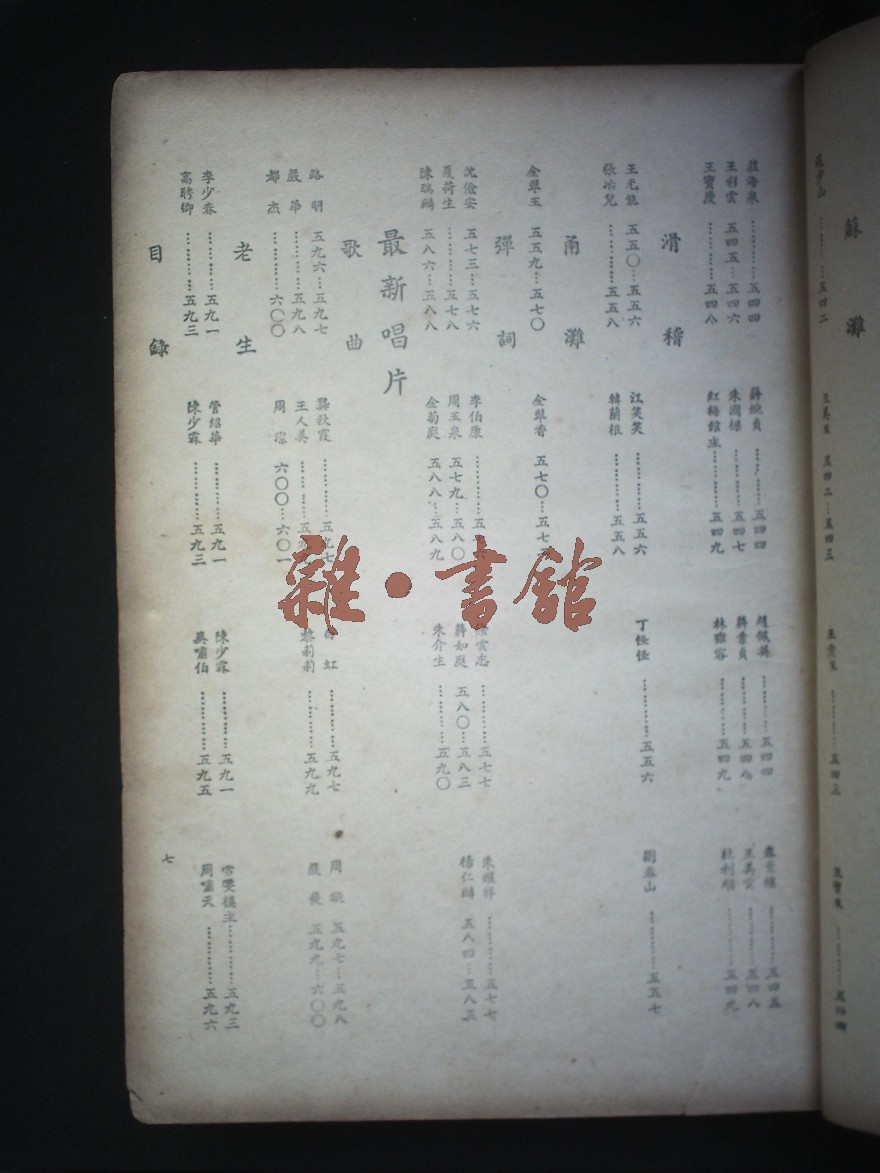 蘇灘
范少山…………五四二
王美玉　五四二…五四三
王愛玉…………五四三
王寶玉…………五四四
莊海泉…………五四四
蔣婉貞…………五四四
趙佩英…………五四四
五四五
王彩雲　五四五…五四六
朱國樑…………五四七
蔣素貞…………五四八
王美雲…………五四八
王寶慶…………五四八
紅梅館主…………五四九
林雍容…………五四九
五四九
滑稽
王无能　五五〇…五五六
江笑笑…………五五六
丁怪怪…………五五六
劉春山…………五五七
張冶兒…………五五八
韓蘭根…………五五八
甬灘
金翠玉　五五九…五七〇
金翠香　五七〇…五七
彈詞
沈儉安　五七三…五七六
李伯康…………五
徐雲志…………五七七
朱耀祥…………五七七
夏荷生…………五七八
周玉泉　五七九…五八〇
蔣如庭　五八〇…五八三
楊仁麟　五八四…五八五
陳瑞麟　五八六…五八八
金菊庭　五八八…五八九
朱介生…………五九〇
最新唱片
歌曲
路明　五九六…五九七
龔秋霞…………五九七
白虹…………五九七
周璇　五九七…五九八
嚴華…………五九八
王人美…………五九
黎莉莉…………五九九
嚴斐　五九九…六〇〇
都杰…………六〇〇
周璇　六〇〇…六〇一
老生
李少春…………五九一
管紹華…………五九一
陳少霖…………五九一
雪雯樓主…………五九三
高聘卿…………五九三
陳少霖…………五九三
吳嘯伯…………五九五
周嘯天…………五九六
目錄
七
雜·書館